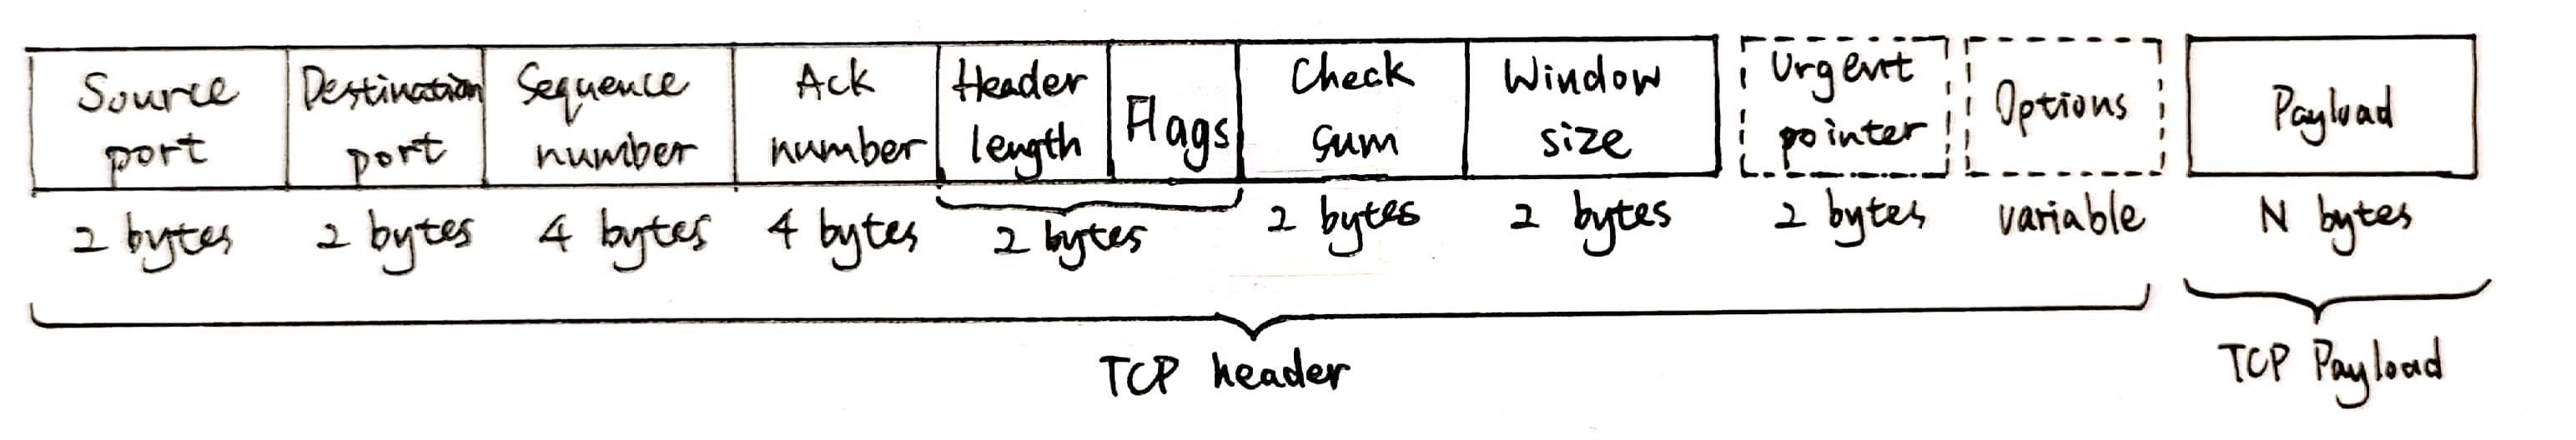 Source
port
Destination
port
Sequence
number
Ack
number
Header
length
Flags
Check
sum
Window
size
Urgent
pointer
Options
Payload
2 bytes
2 bytes
4 bytes
4 bytes
2 bytes
2 bytes
2 bytes
2 bytes
variable
N bytes
TCP header
TCP Payload